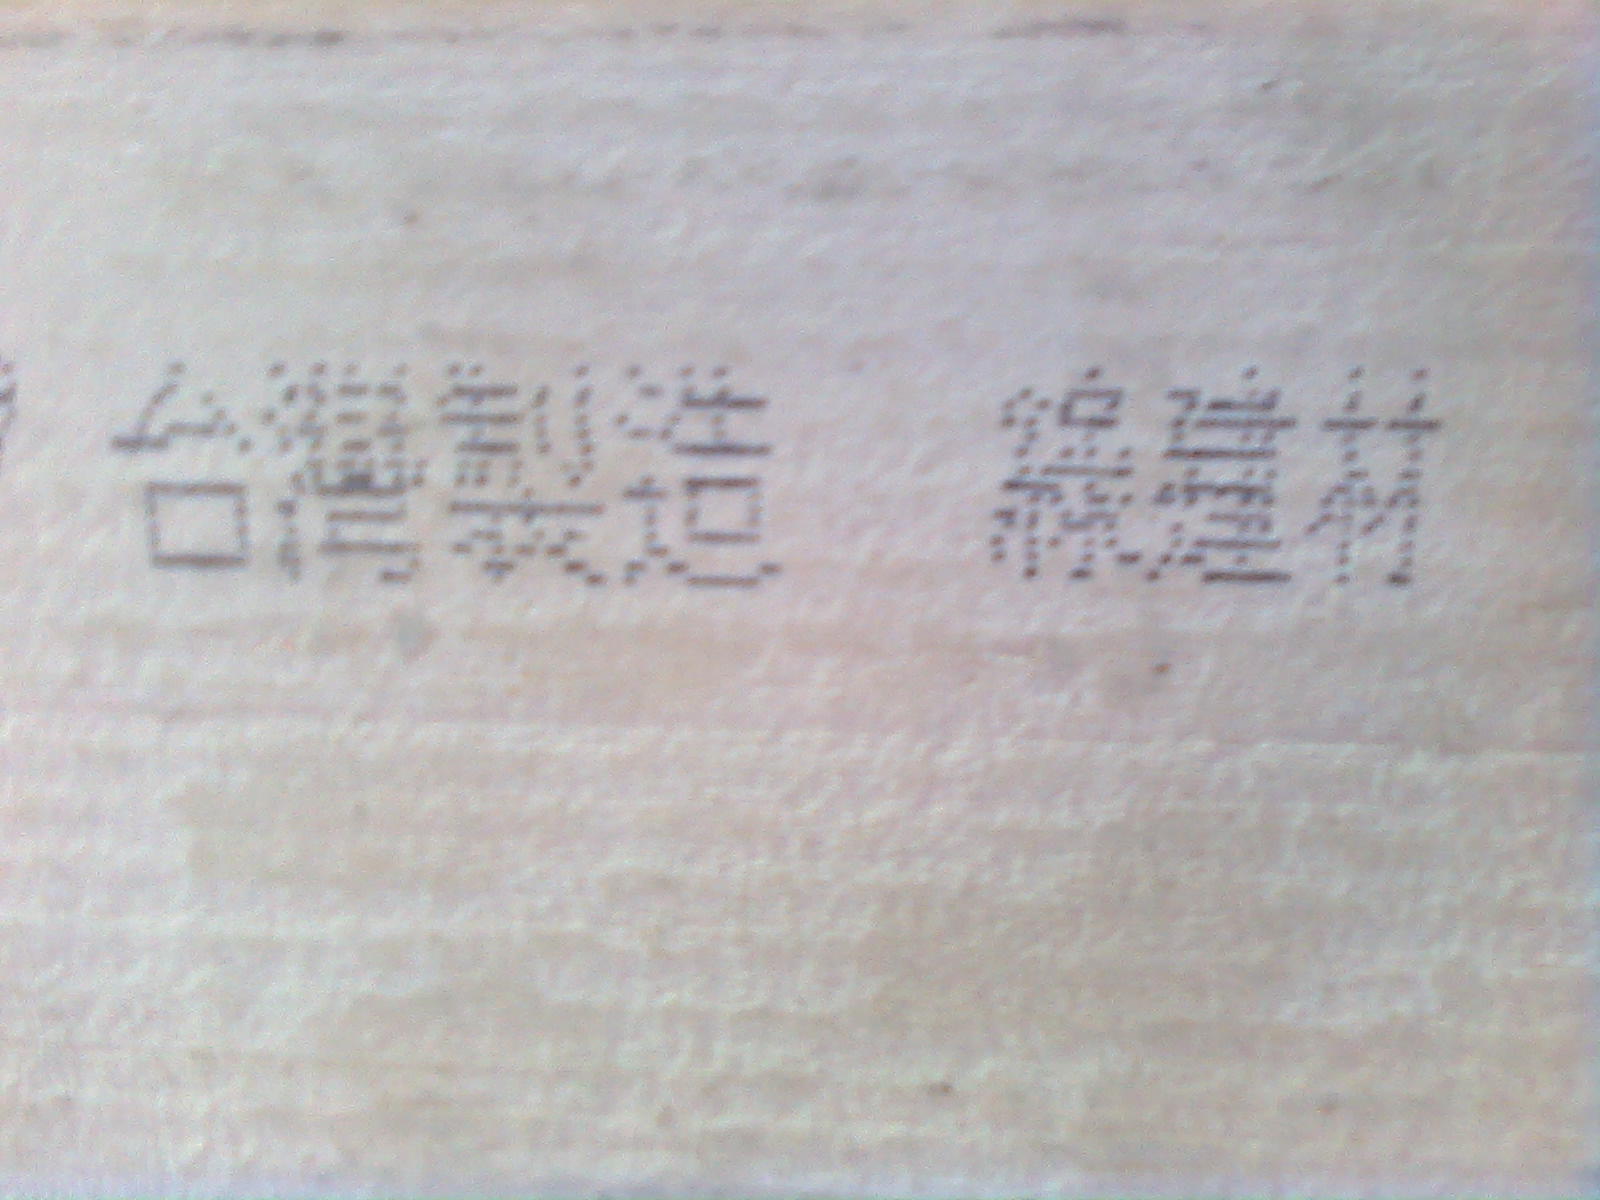 台灣製造 綠建材